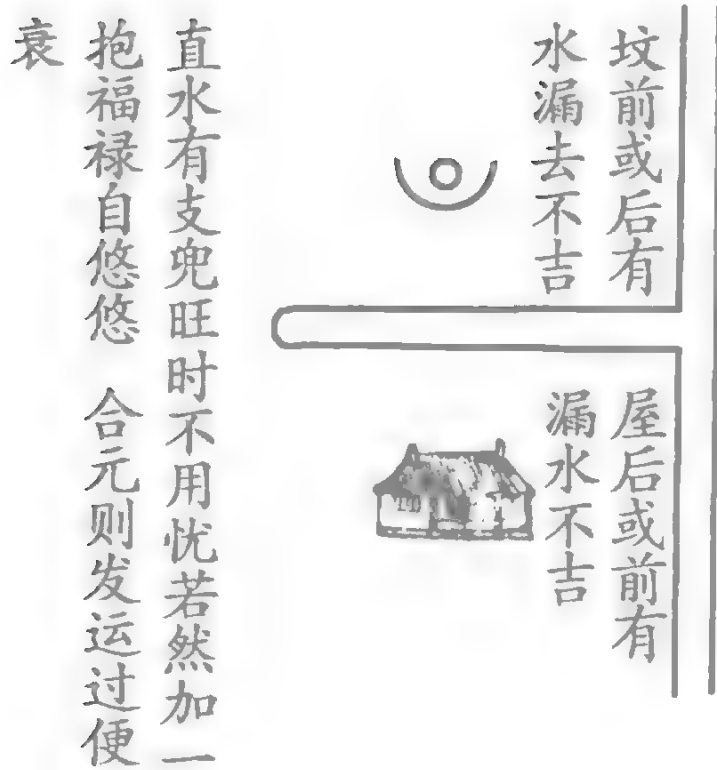 坟前或后有
水漏去不吉
屋后或前有
漏水不吉
直水有支兜旺时不用忧若然加一
抱福禄自悠悠　合元则发运过便
衰